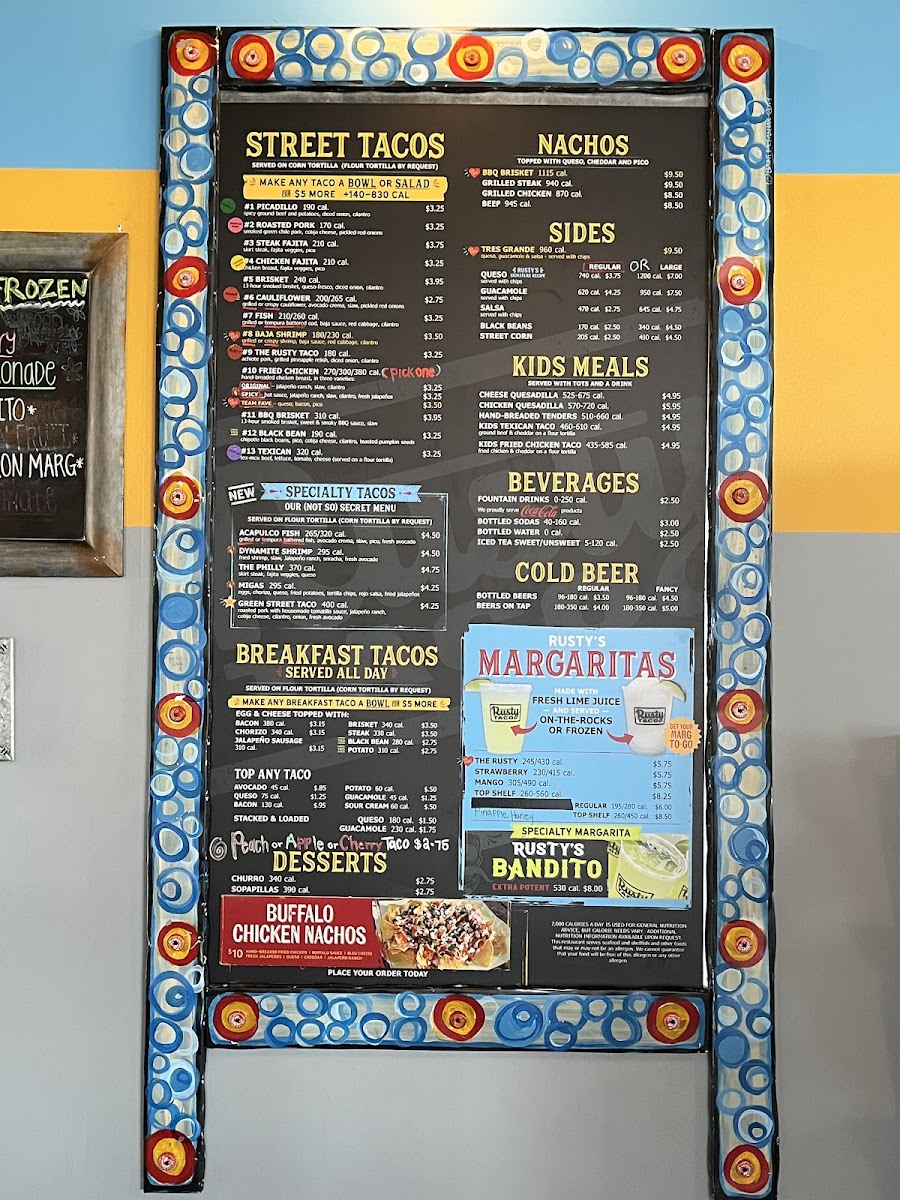 FROZEN
onade
ITO*
ON MARG*
STREET TACOS
SERVED ON CORN TORTILLA (FLOUR TORTILLA BY REQUEST)
MAKE ANY TACO A BOWL OR SALAD
FOR $5 MORE +140-830 CAL
#1 PICADILLO 190 cal. $3.25
spicy ground beef and potatoes, diced onion, cilantro
#2 ROASTED PORK 170 cal. $3.25
smoked green chile pork, cotija cheese, pickled red onions
#3 STEAK FAJITA 210 cal. $3.75
skirt steak, fajita veggies, pico
#4 CHICKEN FAJITA 210 cal. $3.25
chicken breast, fajita veggies, pico
#5 BRISKET 240 cal. $3.95
13 hour smoked brisket, queso fresco, diced onion, cilantro
#6 CAULIFLOWER 200/265 cal. $2.75
grilled or crispy cauliflower, avocado crema, slaw, pickled red onions
#7 FISH 210/260 cal. $3.25
grilled or tempura battered cod, baja sauce, red cabbage, cilantro
#8 BAJA SHRIMP 180/230 cal. $3.50
grilled or crispy shrimp, baja sauce, red cabbage, cilantro
#9 THE RUSTY TACO 180 cal. $3.25
achiote pork, grilled pineapple relish, diced onion, cilantro
#10 FRIED CHICKEN 270/300/380 cal. (pick one)
hand-breaded chicken breast, in three varieties:
ORIGINAL - jalapeño ranch, slaw, cilantro $3.25
SPICY - hot sauce, jalapeño ranch, slaw, cilantro, fresh jalapeños $3.25
TEAM FAVE - queso, bacon, pico $3.50
#11 BBQ BRISKET 310 cal. $3.95
13-hour smoked brisket, sweet & smoky BBQ sauce, slaw
#12 BLACK BEAN 190 cal. $3.25
chipotle black beans, pico, cotija cheese, cilantro, toasted pumpkin seeds
#13 TEXICAN 320 cal. $3.25
tex-mex beef, lettuce, tomato, cheese (served on a flour tortilla)
NEW SPECIALTY TACOS
OUR (NOT SO) SECRET MENU
SERVED ON FLOUR TORTILLA (CORN TORTILLA BY REQUEST)
ACAPULCO FISH 265/320 cal. $4.50
grilled or tempura battered fish, avocado crema, slaw, pico, fresh avocado
DYNAMITE SHRIMP 295 cal. $4.50
fried shrimp, slaw, jalapeño ranch, sriracha, fresh avocado
THE PHILLY 370 cal. $4.75
skirt steak, fajita veggies, queso
MIGAS 295 cal. $4.25
eggs, chorizo, queso, fried potatoes, tortilla chips, rojo salsa, fried jalapeños
GREEN STREET TACO 400 cal. $4.25
roasted pork with housemade tomatillo sauce, jalapeño ranch,
cotija cheese, cilantro, onion, fresh avocado
BREAKFAST TACOS
SERVED ALL DAY
SERVED ON FLOUR TORTILLA (CORN TORTILLA BY REQUEST)
MAKE ANY BREAKFAST TACO A BOWL FOR $5 MORE
EGG & CHEESE TOPPED WITH:
BACON 380 cal. $3.15
CHORIZO 340 cal. $3.15
JALAPEÑO SAUSAGE
310 cal. $3.15
BRISKET 340 cal. $3.50
STEAK 330 cal. $3.50
BLACK BEAN 280 cal. $2.75
POTATO 310 cal. $2.75
TOP ANY TACO
AVOCADO 45 cal. $.85
QUESO 75 cal. $1.25
BACON 130 cal. $.95
POTATO 60 cal. $.50
GUACAMOLE 45 cal. $1.25
SOUR CREAM 60 cal. $.50
STACKED & LOADED
QUESO 180 cal. $1.50
GUACAMOLE 230 cal. $1.75
Peach or Apple or Cherry Taco $2.75
DESSERTS
CHURRO 340 cal. $2.75
SOPAPILLAS 390 cal. $2.75
BUFFALO
CHICKEN NACHOS
$10 HAND-BREADED FRIED CHICKEN | BUFFALO SAUCE | BLEU CHEESE
FRESH JALAPEÑOS | QUESO | CHEDDAR | JALAPEÑO RANCH
PLACE YOUR ORDER TODAY
NACHOS
TOPPED WITH QUESO, CHEDDAR AND PICO
BBQ BRISKET 1115 cal. $9.50
GRILLED STEAK 940 cal. $9.50
GRILLED CHICKEN 870 cal. $8.50
BEEF 945 cal. $8.50
SIDES
TRES GRANDE 960 cal. $9.50
queso, guacamole & salsa - served with chips
REGULAR OR LARGE
QUESO RUSTY'S SIGNATURE RECIPE 740 cal. $3.75 1200 cal. $7.00
served with chips
GUACAMOLE 620 cal. $4.25 950 cal. $7.50
served with chips
SALSA 470 cal. $2.75 645 cal. $4.75
served with chips
BLACK BEANS 170 cal. $2.50 340 cal. $4.50
STREET CORN 205 cal. $2.50 410 cal. $4.50
KIDS MEALS
SERVED WITH TOTS AND A DRINK
CHEESE QUESADILLA 525-675 cal. $4.95
CHICKEN QUESADILLA 570-720 cal. $5.95
HAND-BREADED TENDERS 510-660 cal. $4.95
KIDS TEXICAN TACO 460-610 cal. $4.95
ground beef & cheddar on a flour tortilla
KIDS FRIED CHICKEN TACO 435-585 cal. $4.95
fried chicken & cheddar on a flour tortilla
BEVERAGES
FOUNTAIN DRINKS 0-250 cal. $2.50
We proudly serve Coca-Cola products
BOTTLED SODAS 40-160 cal. $3.00
BOTTLED WATER 0 cal. $2.50
ICED TEA SWEET/UNSWEET 5-120 cal. $2.50
COLD BEER
REGULAR FANCY
BOTTLED BEERS 96-180 cal. $3.50 96-180 cal. $4.50
BEERS ON TAP 180-350 cal. $4.00 180-350 cal. $5.00
RUSTY'S
MARGARITAS
MADE WITH
FRESH LIME JUICE
— AND SERVED —
ON-THE-ROCKS
OR FROZEN
Rusty TACO
Rusty TACO
GET YOUR
MARG
TO-GO
THE RUSTY 245/430 cal. $5.75
STRAWBERRY 230/415 cal. $5.75
MANGO 305/490 cal. $5.75
TOP SHELF 260-560 cal. $8.25
REGULAR 195/280 cal. $6.00
Pinapple Honey TOP SHELF 260/450 cal. $8.50
SPECIALTY MARGARITA
RUSTY'S
BANDITO
EXTRA POTENT 530 cal. $8.00
Rusty TACO
?,000 CALORIES A DAY IS USED FOR GENERAL NUTRITION
ADVICE, BUT CALORIE NEEDS VARY. ADDITIONAL
NUTRITION INFORMATION AVAILABLE UPON REQUEST.
This restaurant serves seafood and shellfish and other foods
that may or may not be an allergen. We cannot guarantee
that your food will be free of this allergen or any other
allergen.